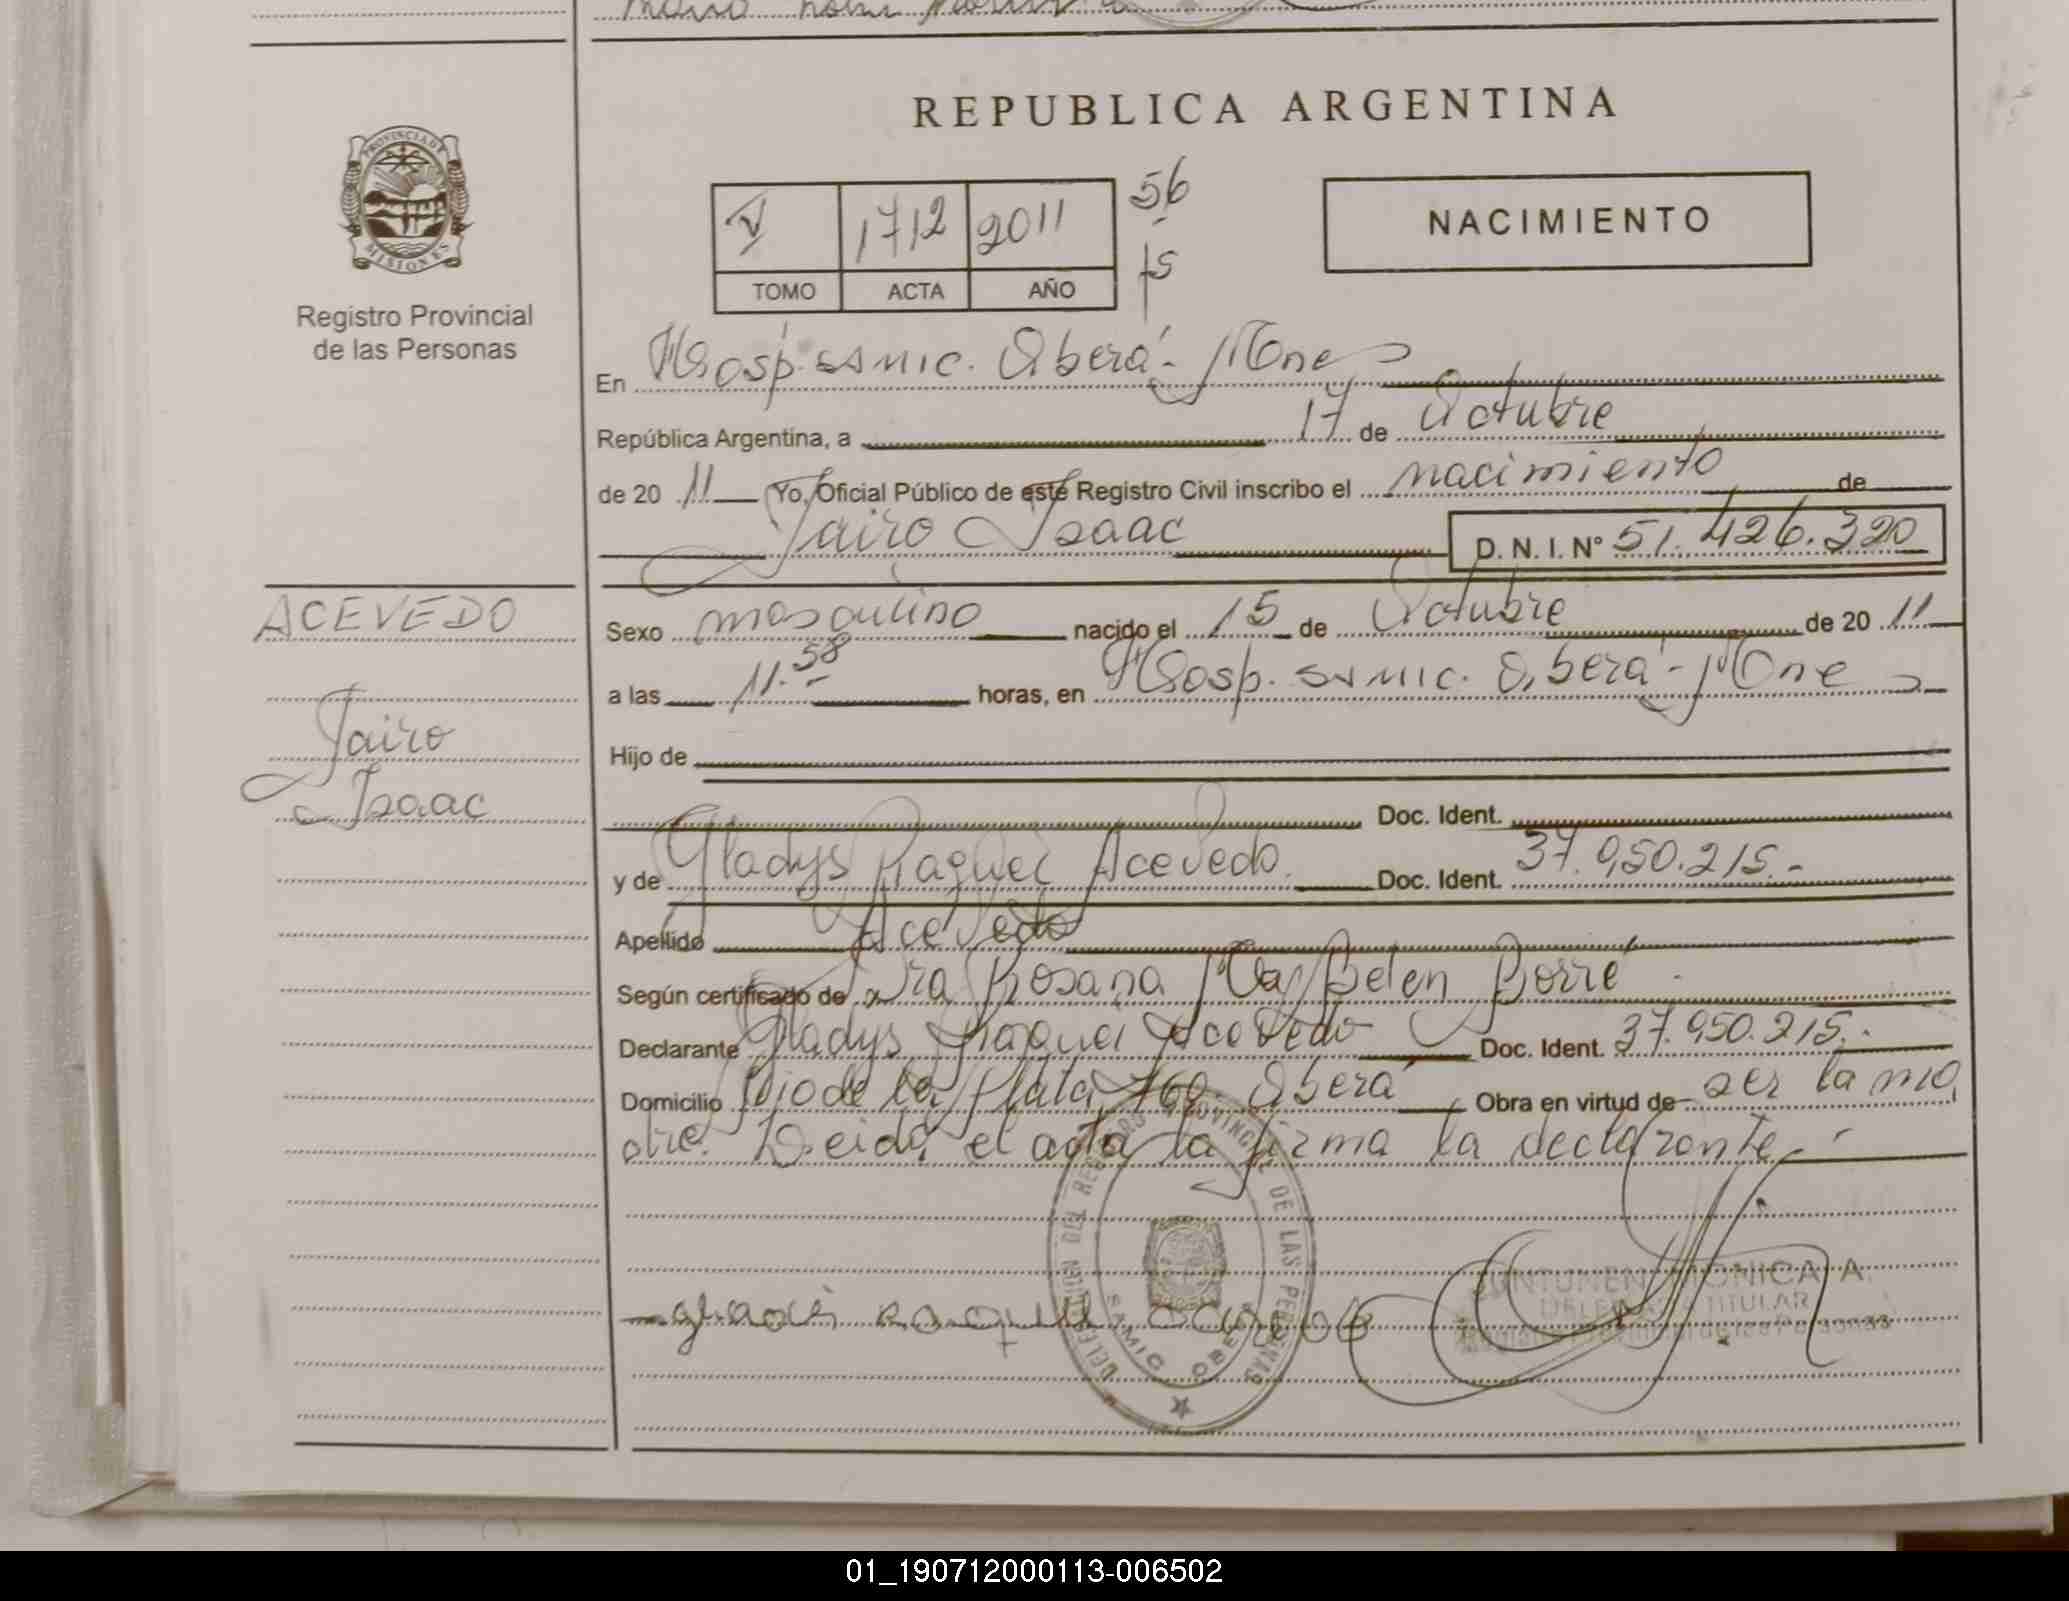 REPUBLICA ARGENTINA
PROVINCIA DE MISIONES
Registro Provincial
de las Personas
V 1712 2011 56
TOMO ACTA AÑO 15
NACIMIENTO
En Hosp. SAMIC. Oberá - Mnes
República Argentina, a 17 de Octubre
de 2011 Yo, Oficial Público de este Registro Civil inscribo el nacimiento de
Jairo Isaac D. N. I. N° 51.426.320
ACEVEDO
Jairo
Isaac
Sexo masculino nacido el 15 de Octubre de 2011
a las 11.58 horas, en Hosp. SAMIC. Oberá - Mnes
Hijo de
Doc. Ident.
y de Gladys Raquel Acevedo. Doc. Ident. 37.950.215.-
Apellido Acevedo
Según certificado de Dra Rosana Ma Belen Borré
Declarante Gladys Raquel Acevedo Doc. Ident. 37.950.215.-
Domicilio Rio de la Plata 760. Oberá Obra en virtud de ser la ma
dre. Leida el acta la firma la declarante.-
DELEGACION DEL REGISTRO PROVINCIAL DE LAS PERSONAS
SAMIC OBERA
MONICA A.
DELEGADA TITULAR
Registro Provincial de las Personas
01_190712000113-006502